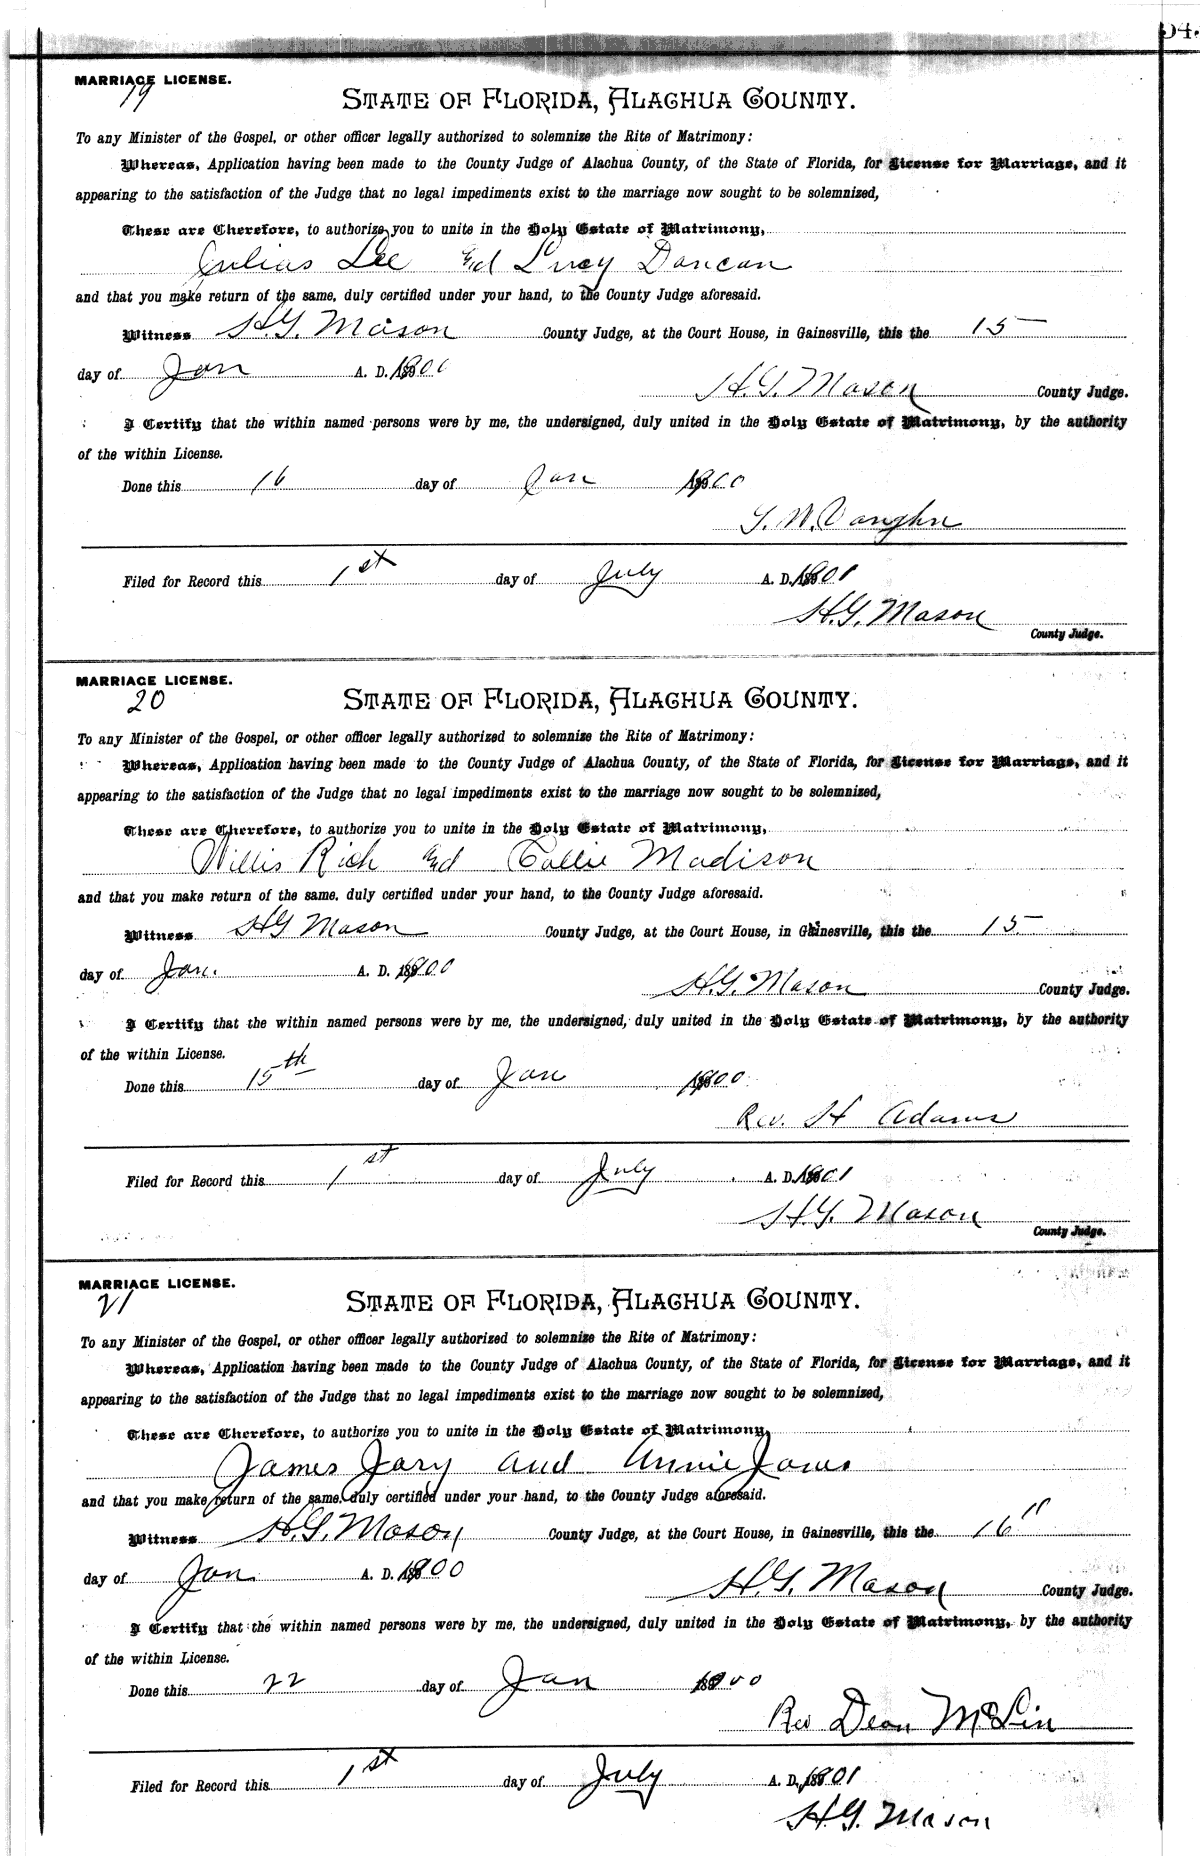 54.
MARRIAGE LICENSE.
19
STATE OF FLORIDA, ALACHUA COUNTY.
To any Minister of the Gospel, or other officer legally authorized to solemnize the Rite of Matrimony:
Whereas, Application having been made to the County Judge of Alachua County, of the State of Florida, for License for Marriage, and it
appearing to the satisfaction of the Judge that no legal impediments exist to the marriage now sought to be solemnized,
These are Therefore, to authorize you to unite in the Holy Estate of Matrimony,
Julias Lee and Lucy Duncan
and that you make return of the same, duly certified under your hand, to the County Judge aforesaid.
Witness H.G. Mason County Judge, at the Court House, in Gainesville, this the 15
day of Jan A. D. 1900
H.G. Mason County Judge.
I Certify that the within named persons were by me, the undersigned, duly united in the Holy Estate of Matrimony, by the authority
of the within License.
Done this 16 day of Jan 1900
Vaughn
Filed for Record this 1st day of July A. D. 1901
H.G. Mason
County Judge.
MARRIAGE LICENSE.
20
STATE OF FLORIDA, ALACHUA COUNTY.
To any Minister of the Gospel, or other officer legally authorized to solemnize the Rite of Matrimony:
Whereas, Application having been made to the County Judge of Alachua County, of the State of Florida, for License for Marriage, and it
appearing to the satisfaction of the Judge that no legal impediments exist to the marriage now sought to be solemnized,
These are Therefore, to authorize you to unite in the Holy Estate of Matrimony,
Willis Rich and Callie Madison
and that you make return of the same, duly certified under your hand, to the County Judge aforesaid.
Witness H G Mason County Judge, at the Court House, in Gainesville, this the 15
day of Jan. A. D. 1900
H.G. Mason County Judge.
I Certify that the within named persons were by me, the undersigned, duly united in the Holy Estate of Matrimony, by the authority
of the within License.
Done this 15th day of Jan 1900
Rev. H Adams
Filed for Record this 1st day of July A. D. 1901
H.G. Mason
County Judge.
MARRIAGE LICENSE.
21
STATE OF FLORIDA, ALACHUA COUNTY.
To any Minister of the Gospel, or other officer legally authorized to solemnize the Rite of Matrimony:
Whereas, Application having been made to the County Judge of Alachua County, of the State of Florida, for License for Marriage, and it
appearing to the satisfaction of the Judge that no legal impediments exist to the marriage now sought to be solemnized,
These are Therefore, to authorize you to unite in the Holy Estate of Matrimony,
James Jary and Annie Jones
and that you make return of the same, duly certified under your hand, to the County Judge aforesaid.
Witness H.G. Mason County Judge, at the Court House, in Gainesville, this the 16"
day of Jan. A. D. 1900
H.G. Mason County Judge.
I Certify that the within named persons were by me, the undersigned, duly united in the Holy Estate of Matrimony, by the authority
of the within License.
Done this 22 day of Jan 1900
Rev Dean McLin
Filed for Record this 1st day of July A. D. 1901
H.G. Mason